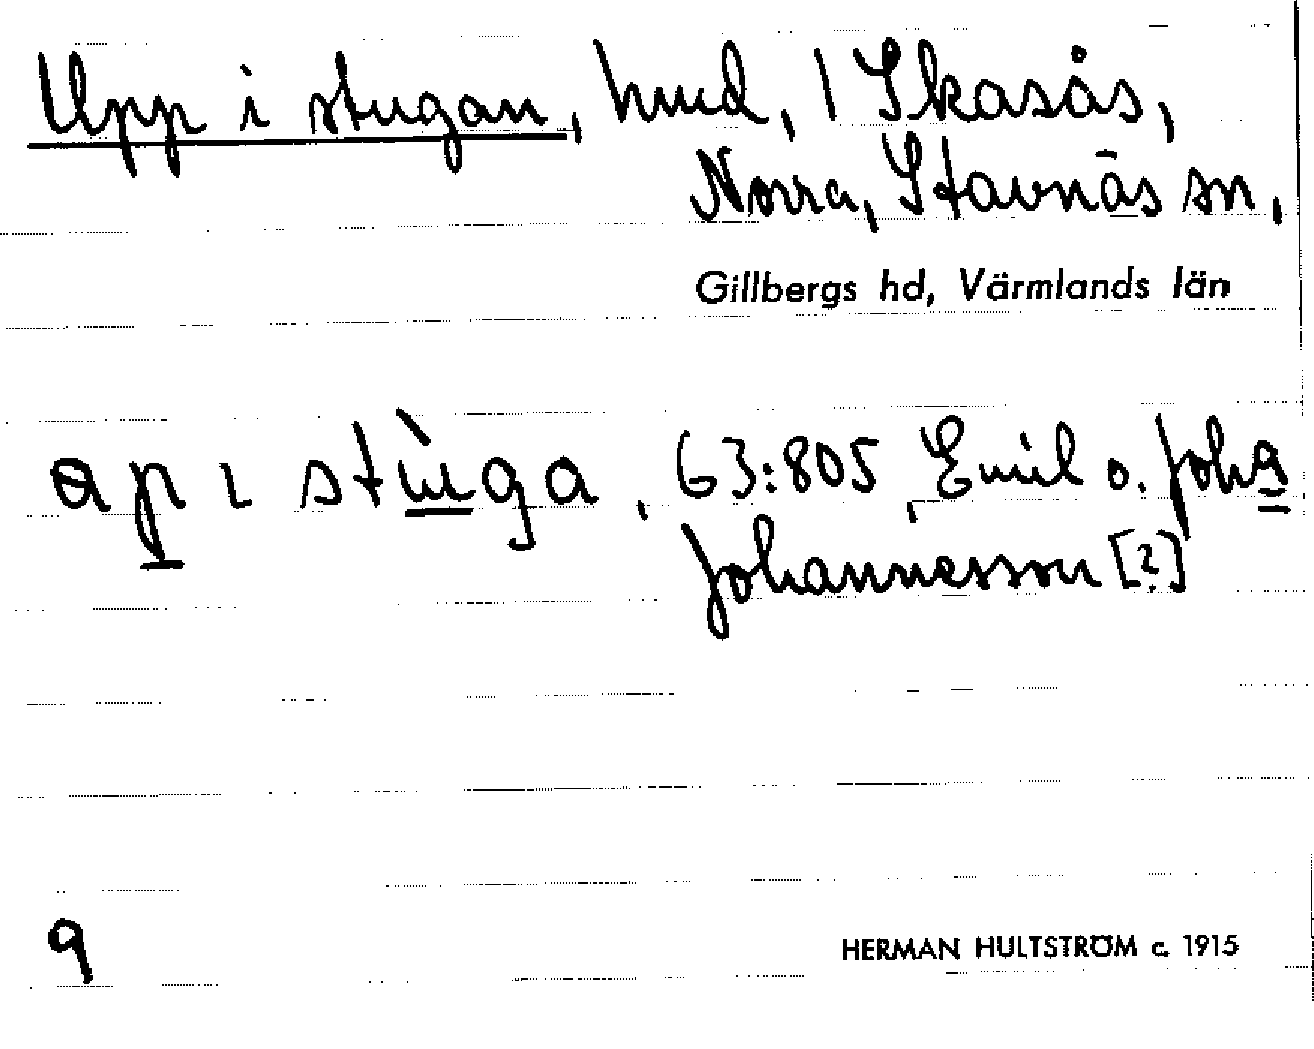 Upp i stugan, hmd, 1 Skasås,
Norra, Stavnäs sn,
Gillbergs hd, Värmlands län
ap ɩ stùga, 63:805, Emil o. Joh a
Johannesson [?]
9
HERMAN HULTSTRÖM c. 1915